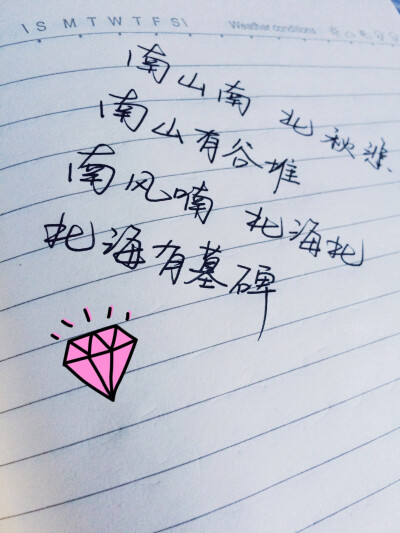 I S M T W T F S I
Weather conditions
南山南 北秋悲
南山有谷堆
南风喃 北海北
北海有墓碑